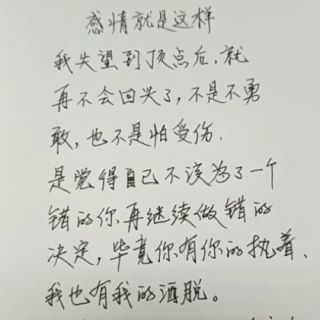 感情就是这样
我失望到顶点后，就
再不会回头了，不是不勇
敢，也不是怕受伤.
是觉得自己不该为了一个
错的你再继续做错的
决定，毕竟你有你的执着、
我也有我的洒脱。